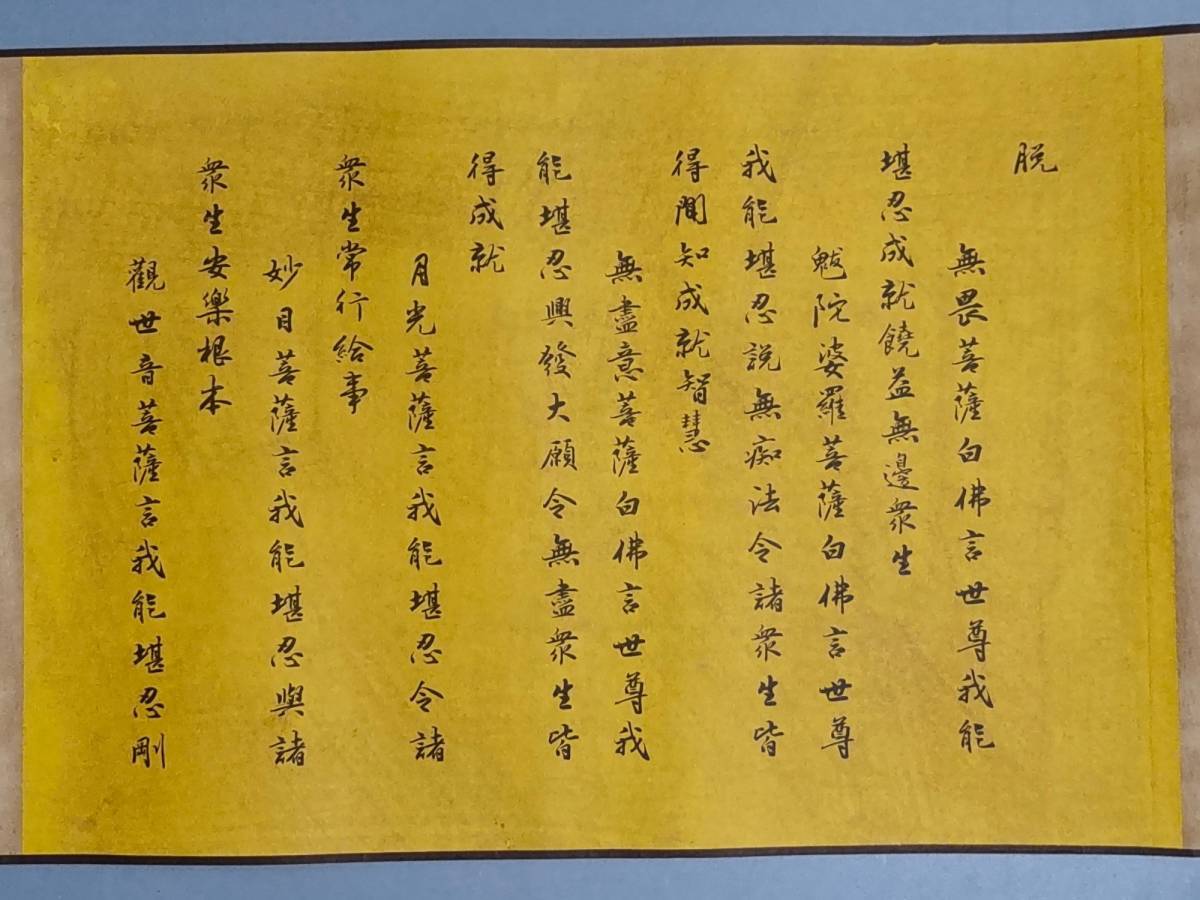 脱
無畏菩薩白佛言世尊我能
堪忍成就饒益無邊衆生
魃陀婆羅菩薩白佛言世尊
我能堪忍說無痴法令諸衆生皆
得聞知成就智慧
無盡意菩薩白佛言世尊我
能堪忍興發大願令無盡衆生皆
得成就
月光菩薩言我能堪忍令諸
衆生常行給事
妙目菩薩言我能堪忍與諸
衆生安樂根本
觀世音菩薩言我能堪忍剛